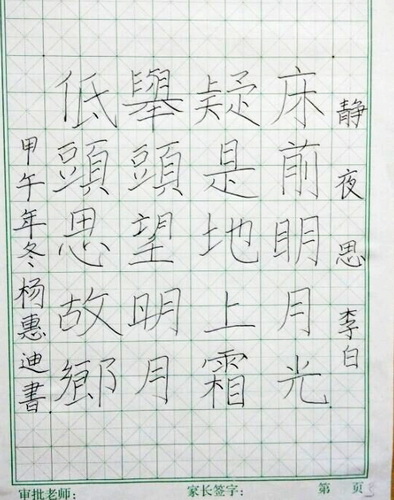 静夜思 李白
床前明月光
疑是地上霜
舉頭望明月
低頭思故鄉
甲午年冬杨惠迪書
审批老师： 家长签字： 第 页